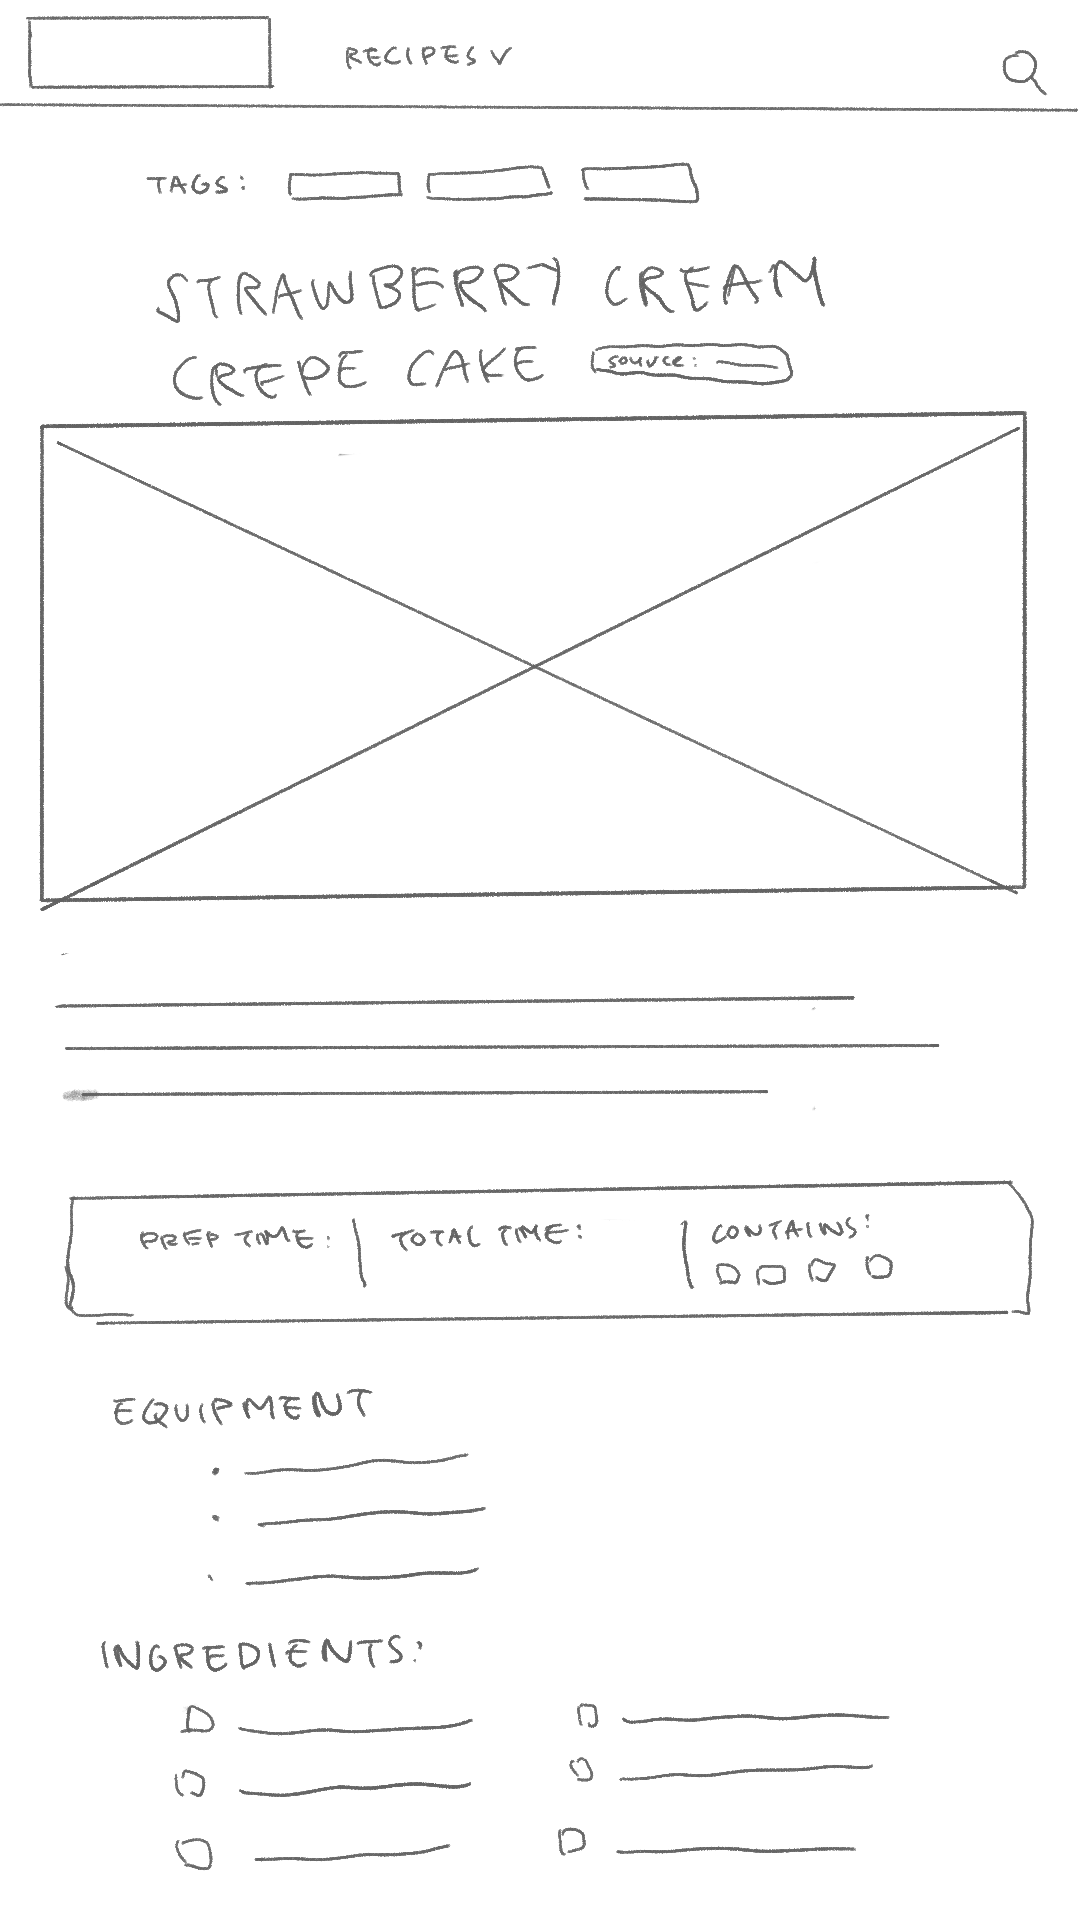 RECIPES
TAGS:
STRAWBERRY CREAM
CREPE CAKE
source:
PREP TIME:
TOTAL TIME:
CONTAINS:
EQUIPMENT
INGREDIENTS: